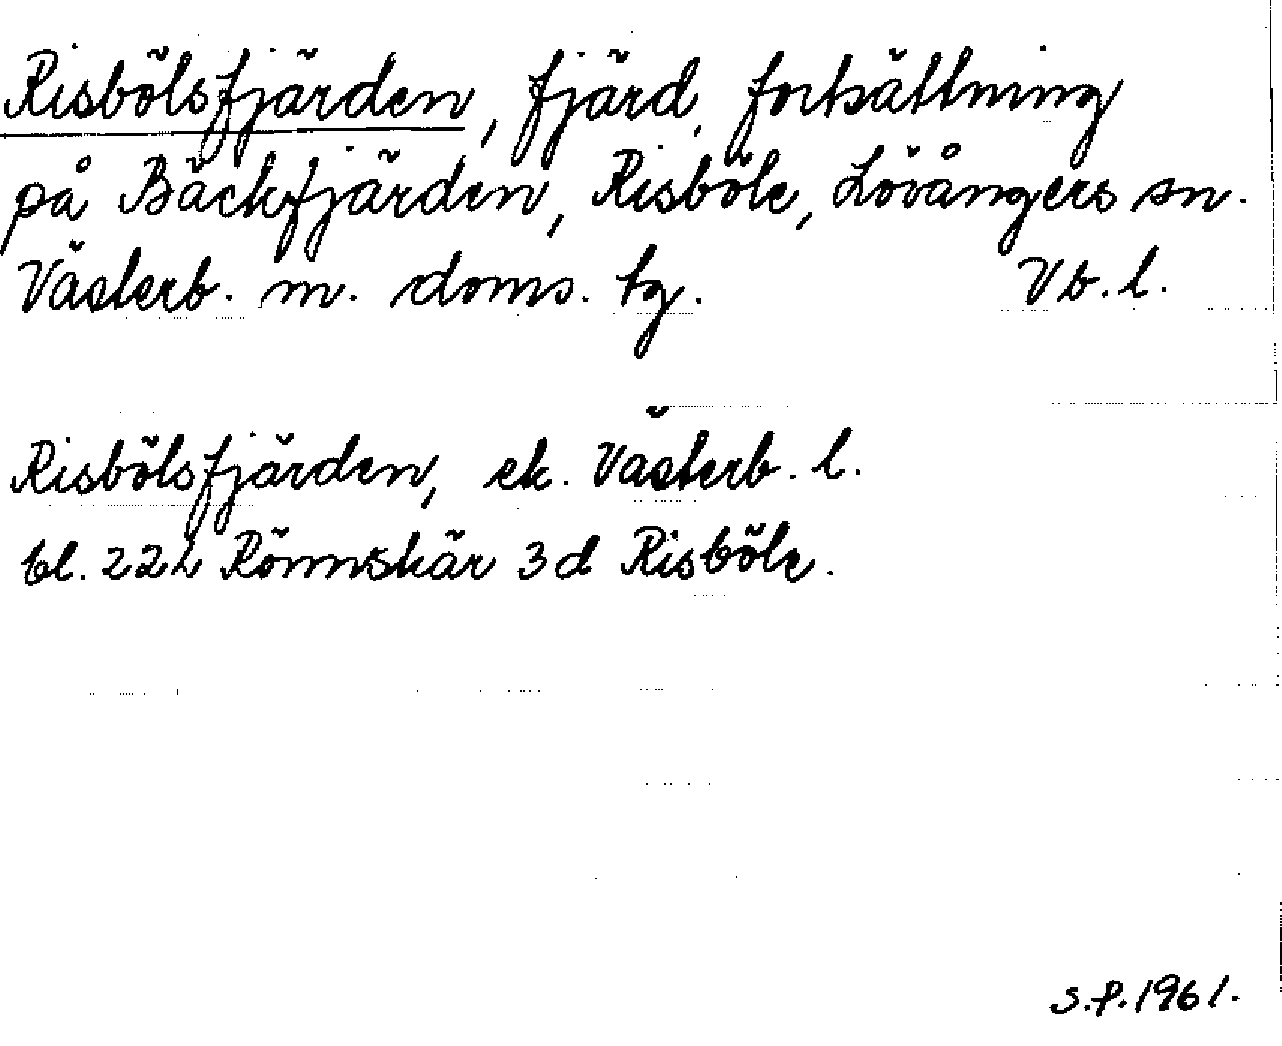 Risbölsfjärden, fjärd, fortsättning
på Bäckfjärden, Risböle, Lövångers sn.
Västerb. m. doms. tg. Vb. l.
Risbölsfjärden, ek. Västerb. l.
bl. 22h Rönnskär 3d Risböle.
S.P. 1961.